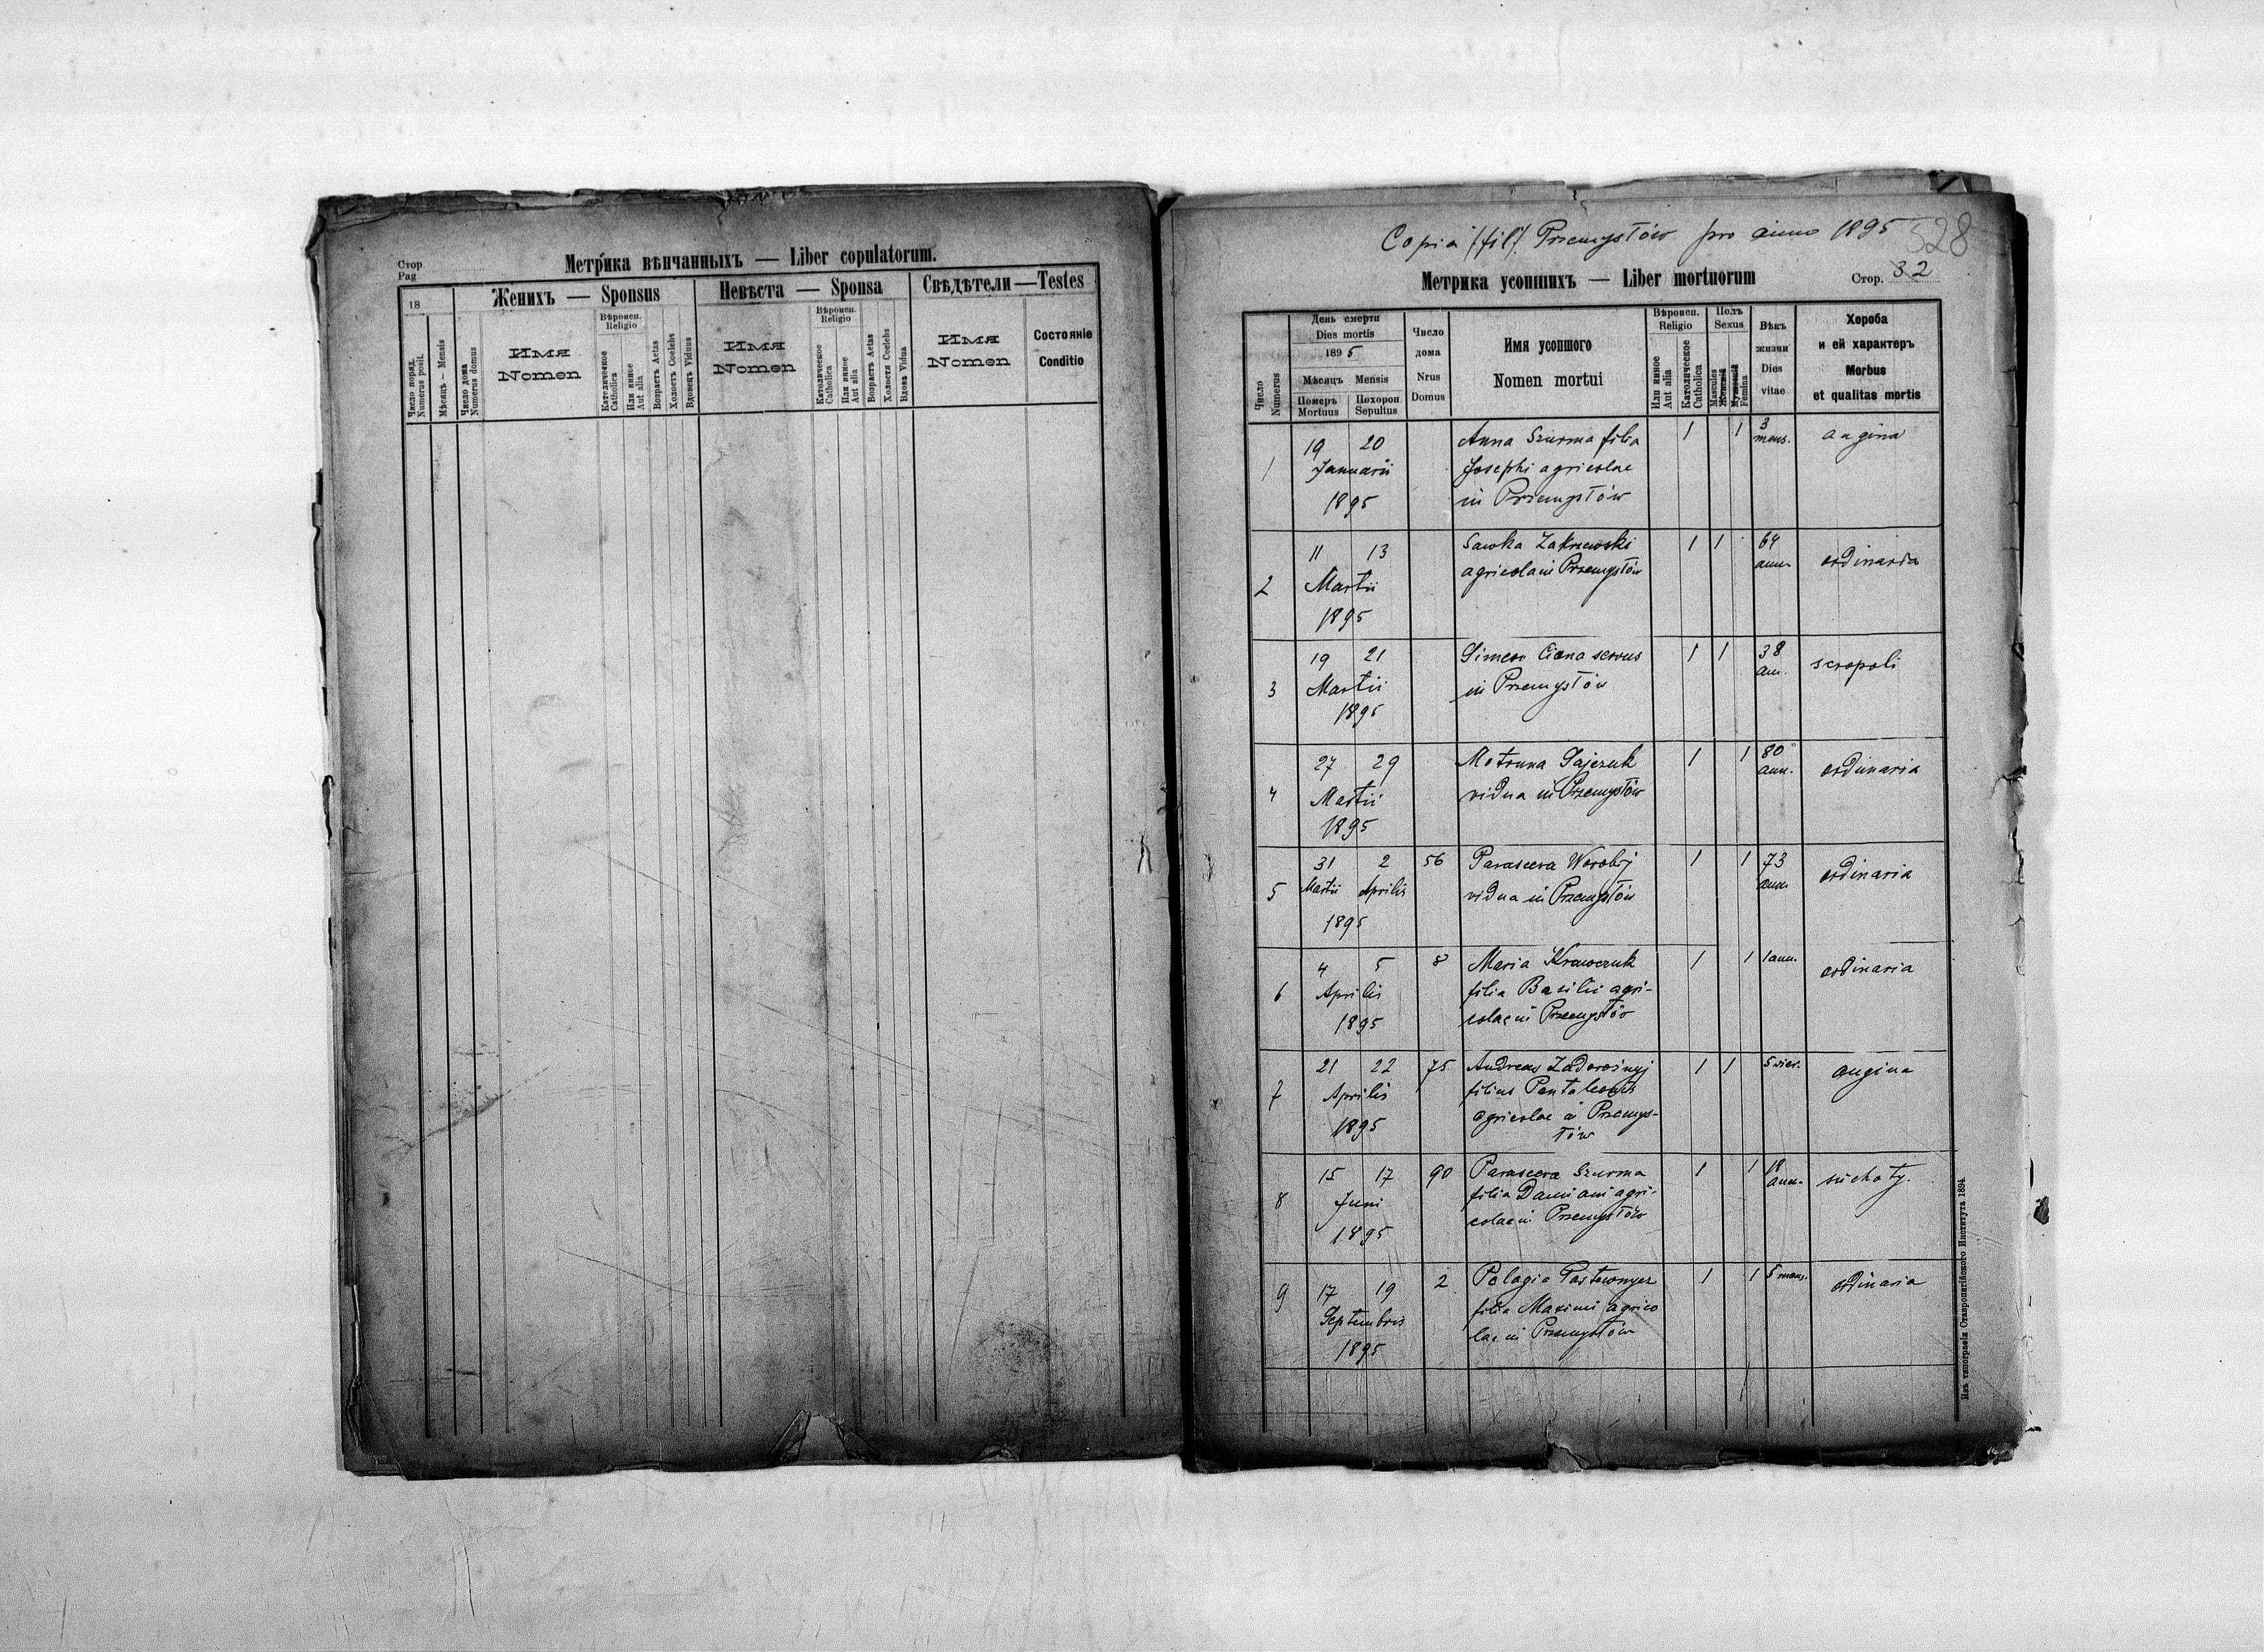 Стор.
Pag
Метрика вѣнчанныхъ — Liber copulatorum.
18
Женихъ — Sponsus
Невѣста — Sponsa
Свѣдѣтели — Testes
Число поряд.
Numerus posit.
Мѣсяцъ – Mensis
Число дома
Numerus domus
Имя
Nomen
Вѣроисп.
Religio
Католическое
Catholica
Или иное
Aut alia
Возрастъ Aetas
Холостъ Coelebs
Вдовецъ Viduus
Имя
Nomen
Вѣроисп.
Religio
Католическое
Catholica
Или иное
Aut alia
Возрастъ Aetas
Холости Coelebs
Вдова Vidua
Имя
Nomen
Состояніе
Conditio
Copia /fil/ Przemysłów pro anno 1895
528
Метрика усопшихъ — Liber mortuorum
Стор. 32
Число
Numerus
День смерти
Dies mortis
1895
Мѣсяцъ Mensis
Померъ
Mortuus
Похорон.
Sepultus
Число
дома
Nrus
Domus
Имя усопшого
Nomen mortui
Вѣроисп.
Religio
Или иное
Aut alia
Католическое
Catholica
Полъ
Sexus
Mascules
Женскій
Мужескій
Femina
Вѣкъ
жизни
Dies
vitae
Хороба
и ей характеръ
Morbus
et qualitas mortis
1 19 20 Anna Szurma filia 1 1 3 mens. angina
Januarii Josephi agricolae
1895 in Przemysłów
2 11 13 Sawka Zakrzewski 1 1 64 ann. ordinaria
Martii agricola in Przemysłów
1895
3 19 21 Simeon Ciona servus 1 1 38 ann. scropoli
Martii in Przemysłów
1895
4 27 29 Motruna Gajczuk 1 1 80 ann. ordinaria
Martii vidua in Przemysłów
1895
5 31 2 56 Parasceva Worobij 1 1 73 ann. ordinaria
Martii Aprilis vidua in Przemysłów
1895
6 4 5 8 Maria Krawczuk 1 1 1 ann. ordinaria
Aprilis filia Basilii agri-
1895 colae in Przemysłów
7 21 22 75 Andreas Zadorożnyj 1 1 5 angina
Aprilis filius Pantaleonis
agricolae in Przemys-
1895 łów
8 15 17 90 Parasceva Szurma 1 1 18 ann. suchoty.
Juni filia Damiani agri-
1895 colae in Przemysłów
9 17 19 2 Pelagia 1 1 5 mens. ordinaria
Septembris filia Maximi agrico
1895 lae in Przemysłów
Изъ типографіи Ставропигійского Института 1894.